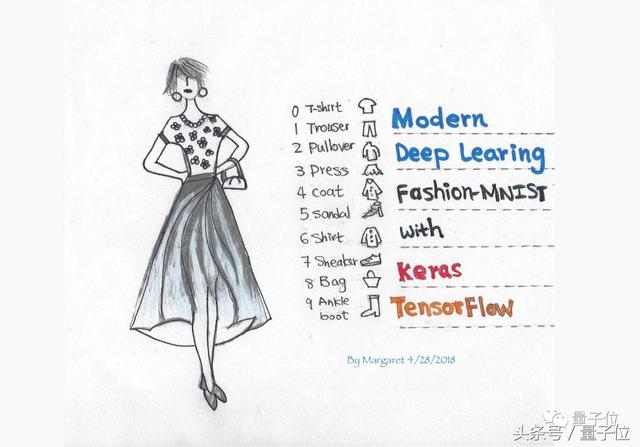 0 T-shirt
1 Trouser
2 Pullover
3 Dress
4 coat
5 sandal
6 Shirt
7 Sneaker
8 Bag
9 Ankle
boot
Modern
Deep Learing
Fashion-MNIST
with
Keras
TensorFlow
By Margaret 4/28/2018
量子位
头条号 / 量子位